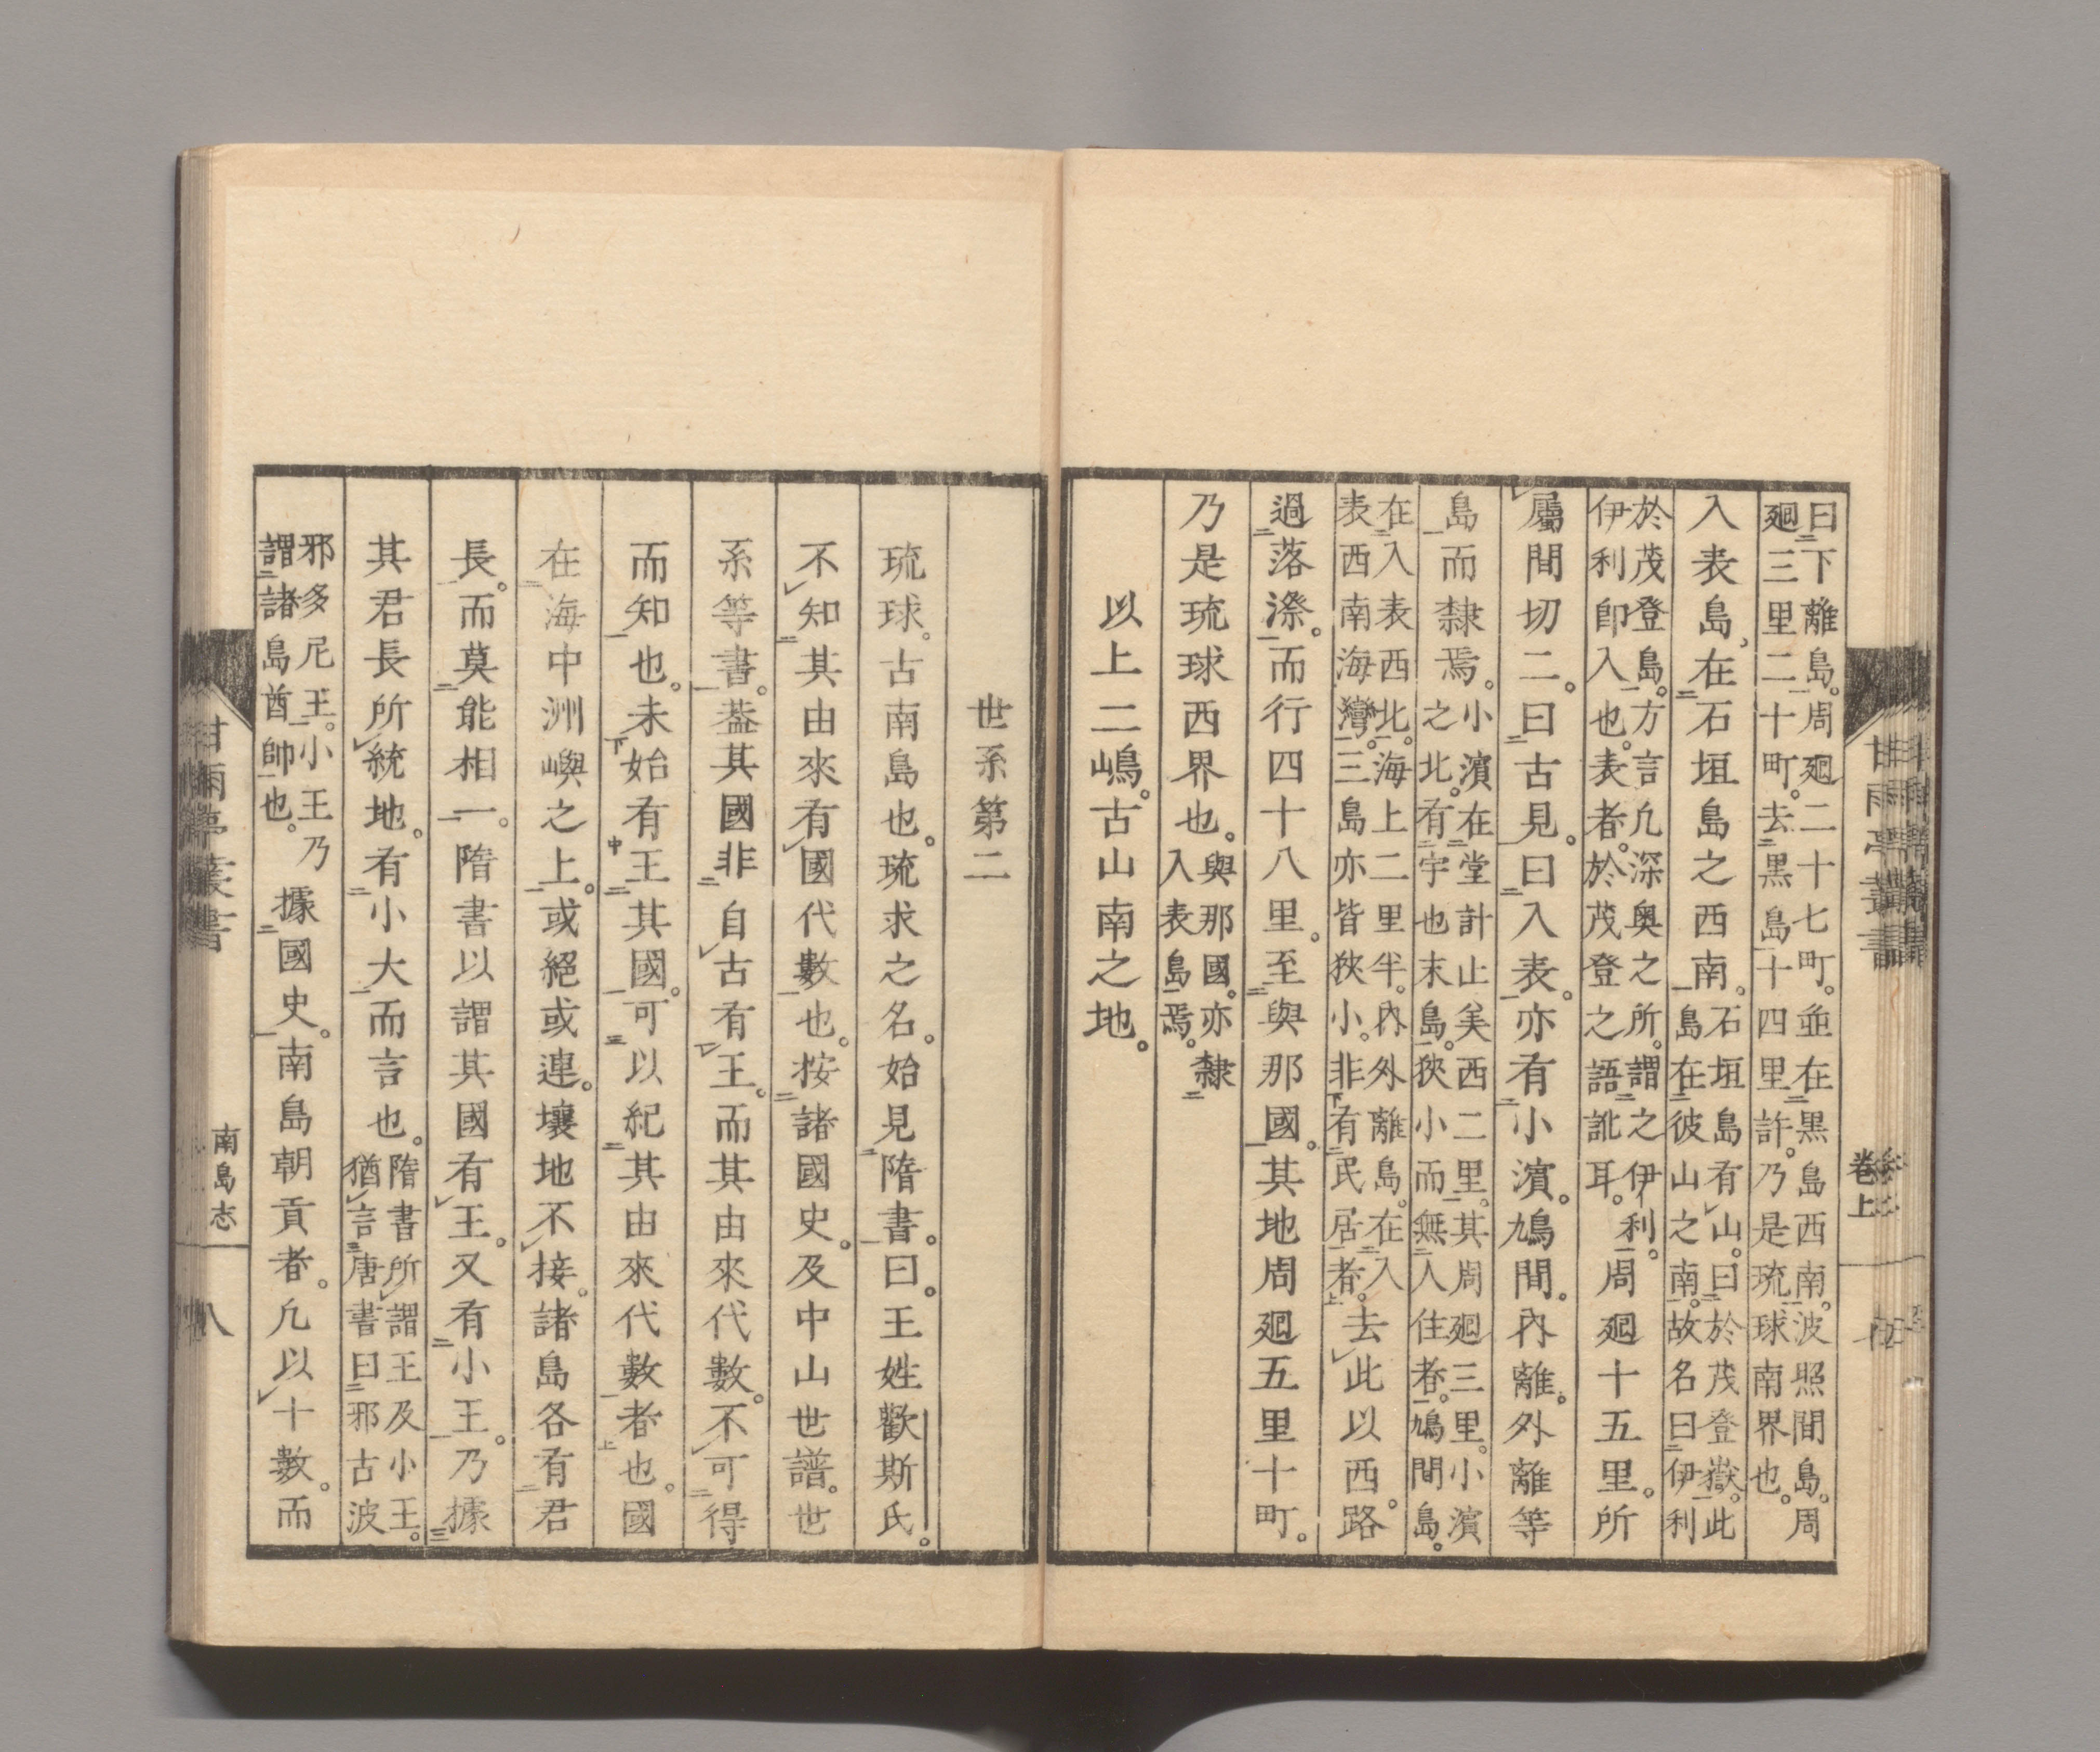 曰下離島。周廻二十七町。並在黒島西南。波照間島。周
廻三里二十町。去黒島十四里許。乃是琉球南界也。
入表島、在石垣島之西南。石垣島有山。曰於茂登嶽。此
島在彼山之南。故名曰伊利
於茂登島。方言凢深奥之所。謂之伊利。
伊利卽入也。表者。於茂登之語訛耳。周廻十五里。所
屬間切二。曰古見。曰入表。亦有小濱。鳩間。內離。外離等
島而隸焉。小濱在堂計止美西二里。其周廻三里。小濱
之北。有宇也末島。狹小而無人住者。鳩間島。
在入表西北。海上二里半。內外離島。在入
表西南海灣。三島亦皆狹小。非有民居者。去此以西。路
過落漈。而行四十八里。至與那國。其地周廻五里十町。
乃是琉球西界也。與那國。亦隸
入表島焉。
以上二嶋。古山南之地。
甘雨亭叢書
卷上
世系第二
琉球。古南島也。琉求之名。始見隋書。曰。王姓歡斯氏。
不知其由來有國代數也。按諸國史。及中山世譜。世
系等書。葢其國非自古有王。而其由來代數。不可得
而知也。未始有王其國。可以紀其由來代數者也。國
在海中洲嶼之上。或絕或連。壤地不接。諸島各有君
長。而莫能相一。隋書以謂其國有王。又有小王。乃據
其君長所統地。有小大而言也。隋書所謂王及小王。
猶言唐書曰邪古波
邪多尼王。小王乃
謂諸島酋帥也。據國史。南島朝貢者。凢以十數。而
甘雨亭叢書
南島志
八